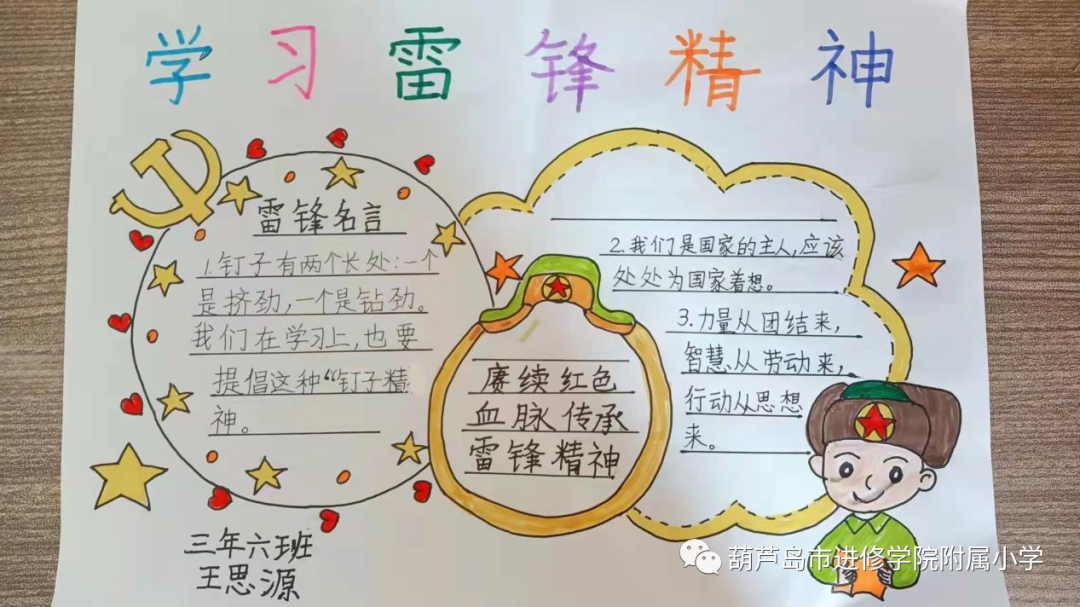 学习雷锋精神
雷锋名言
1.钉子有两个长处:一个
是挤劲,一个是钻劲。
我们在学习上,也要
提倡这种“钉子精
神。
赓续红色
血脉传承
雷锋精神
2.我们是国家的主人,应该
处处为国家着想。
3.力量从团结来,
智慧从劳动来,
行动从思想
来。
三年六班
王思源
葫芦岛市进修学院附属小学